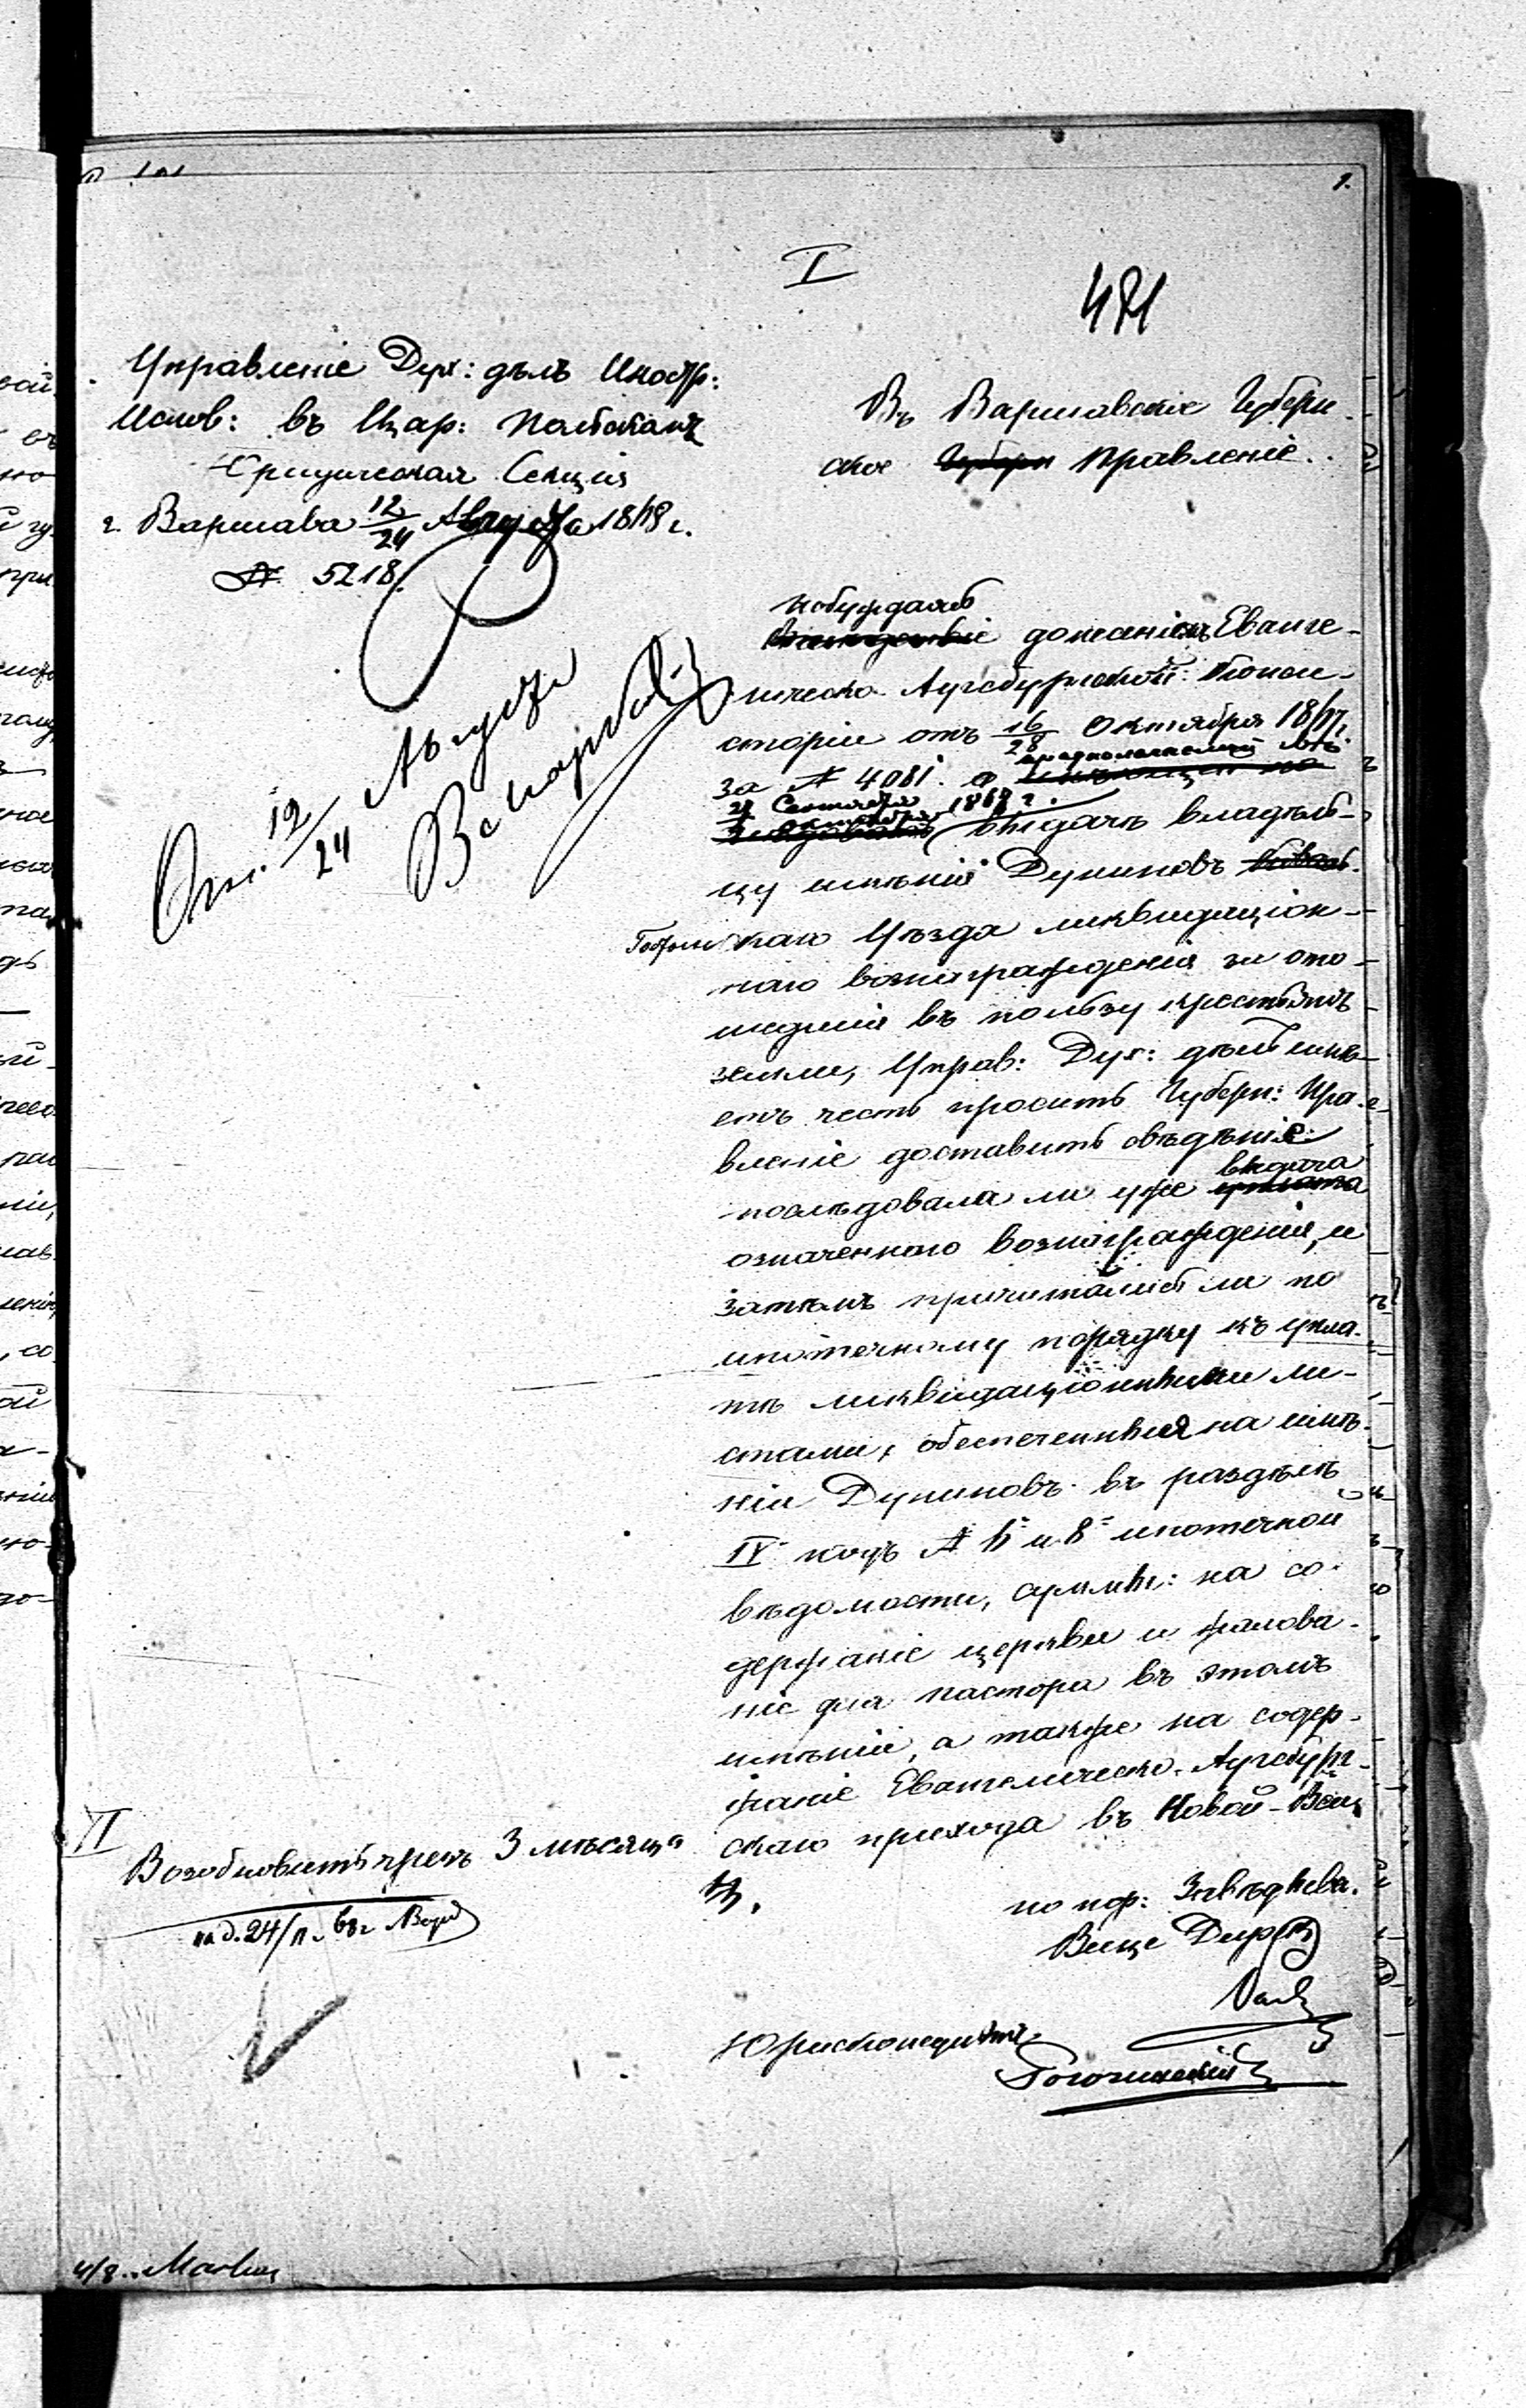 1.
I
481
Управленіе Дух: дѣлъ Иностр:
Испов: въ Цар: Польскомъ
Юридическая Секція
г. Варшава 12/24 Августа 1868 г.
№ 5218.
Въ Варшавское Губерн-
ское Губерн Правленіе.
12/24 Августа
побуждаясь
донесеніемъ Еванге-
лическо-Аугсбургской Конси-
сторіи отъ 16/28 Октября 1867 г.
за № 4081. о предполагаемой
Сентября 1867 г.
выдачѣ владѣль-
цу имѣнія Дуниновъ
Гостынскаго Уѣзда ликвидаціон-
наго вознагражденія за ото-
шедшія въ пользу крестьянъ
земли, Управ: Дух: дѣлъ имѣ-
етъ честь просить Губерн: Пра-
вленіе доставить свѣдѣніе:
выдача
послѣдовала ли уже уплата
означеннаго вознагражденія, и
затѣмъ причитались ли по
ипотечному порядку къ упла-
тѣ ликвидаціонными ли-
стами, обеспеченныя на имѣ-
ніи Дуниновъ въ раздѣлѣ
IV подъ № 6 и 8 ипотечной
вѣдомости, суммы: на со-
держаніе церкви и жалова-
ніе для пастора въ этомъ
имѣніи, а также на содер-
жаніе Евангелическо-Аугсбург-
скаго прихода въ Новой-Вси
II
Возобновить чрезъ 3 мѣсяца
по пор: Завѣдыва.
Вице Дир
Юрисконсультъ